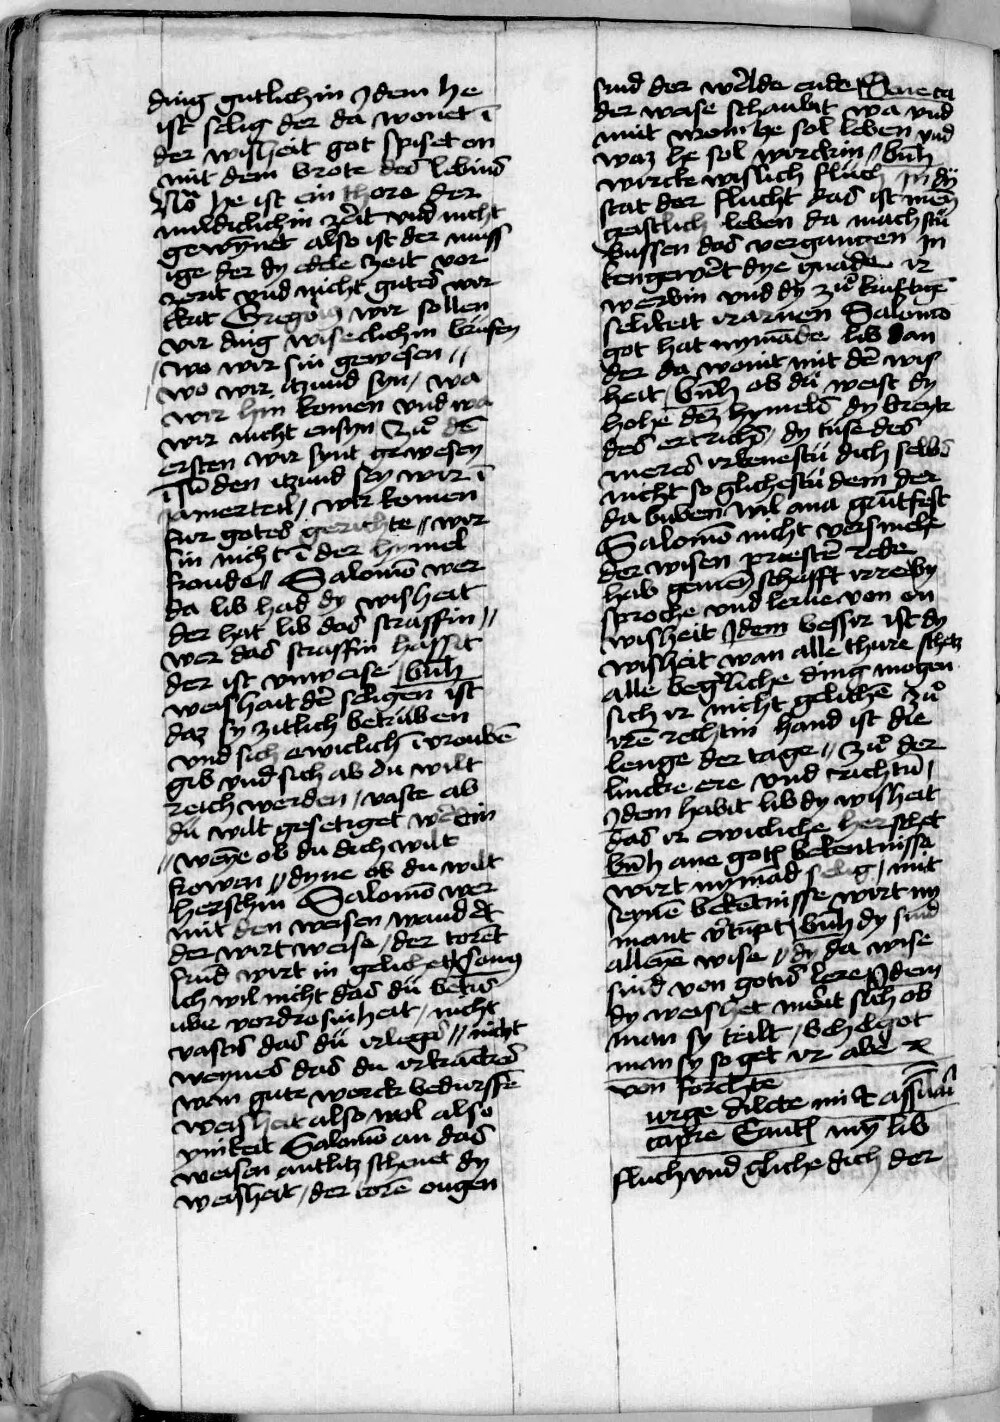 ding gutlichin Jdem he
ist selig der da wonet ī
der wisheit got spiset en
mit dem brote des lebins
No he ist ein thore der
mildiclichin zcert vnd nicht
gewynnet also ist der muss
ige der dy edele zeit vor
zcert vnd nicht gutes wir
cket Gregoꝰ wir sollen
vir ding wiseclichin brusen
wo wir sin gewesen //
wo wir itzund syn / wa
wir hyn komen vnd wa
wir nicht ensyn Zů dē
ersten wir synt gewesen
ī sūden itzund sey wir ī
jamertail / wir komen
fur gotes gerichte // wir
sin nicht ī der hymel
freude // Salomō wer
da lib had dy wisheit
der hat lib das straffin //
wer das straffin hassit
der ist vnweise / būh
weisheit dē seligen ist
daz sy zitlich betruben
vnd sich ewiclich ī vrouwē
gib vnd sich ab du wilt
reich werden / vaste ab
du wilt gesetiget werdin
// weyne ob du dich wilt
frowen // dyne ob du wilt
herschin Salomō wer
mit den weisen wandert
der wirt weise / der toren
frūd wirt in gelichet
ich wil nicht das dū betis
ubir vordrosinheit / nicht
vastes das dū irligest // nicht
weynes das du irtrackes
wan gute werck bedurffē
weisheit also wol also
vnikeit Salomō an das
weisen antlitz schenet dy
weisheit / der torē ougen
sind der werlde ende Seneca
der weise schauwt wa vnd
mit wem he sol leben vnd
waz he sol wirckin // būh
wircke wislich fluch in dy
stat der flucht das ist mein
geistlich leben da machstu
bussen das vergangen in
kengewert dye gnade ir
werbin vnd dy zů kunftige
selikeit irarnen Salomō
got hat nymāde lib wan
der da wonit mit dē wis
heit / būh ob dū weist dy
hohe dez hymels dy breyte
des ertrichs / dy tufe des
meres irkenestu dich selbs
nicht so glichestu dem der
da buwen wil ana gruntfest
Salomō nicht versmehe
der wisen priestē rede
hab gemeinschafft irre by
sproche vnd lerne von en
wisheit Jdem bessir ist dy
wisheit wan alle thure schetz
alle begerliche ding mogen
sich ir nicht gelichē Zů
irē rechtin hand ist die
lenge der tage // Zů der
lincke ere vnd richtū /
Jdem habit lib dy wisheit
das ir ewicliche herschet
būh ane gotꝭ bekentnisse
wirt nymād selig / mit
seynē bekētnisse wirt ny
mant vertūpt / būh dy sind
alleyne wise // dy da wise
sind von gotis lere Jdem
dy weisheit meret sich ob
man sy teilt / behelgot
man sy so get ir abe ꝛc
von forchte
urge dilcte mi ꝛc assūaū
capre Canti my lib
fluch vnd gliche dich der